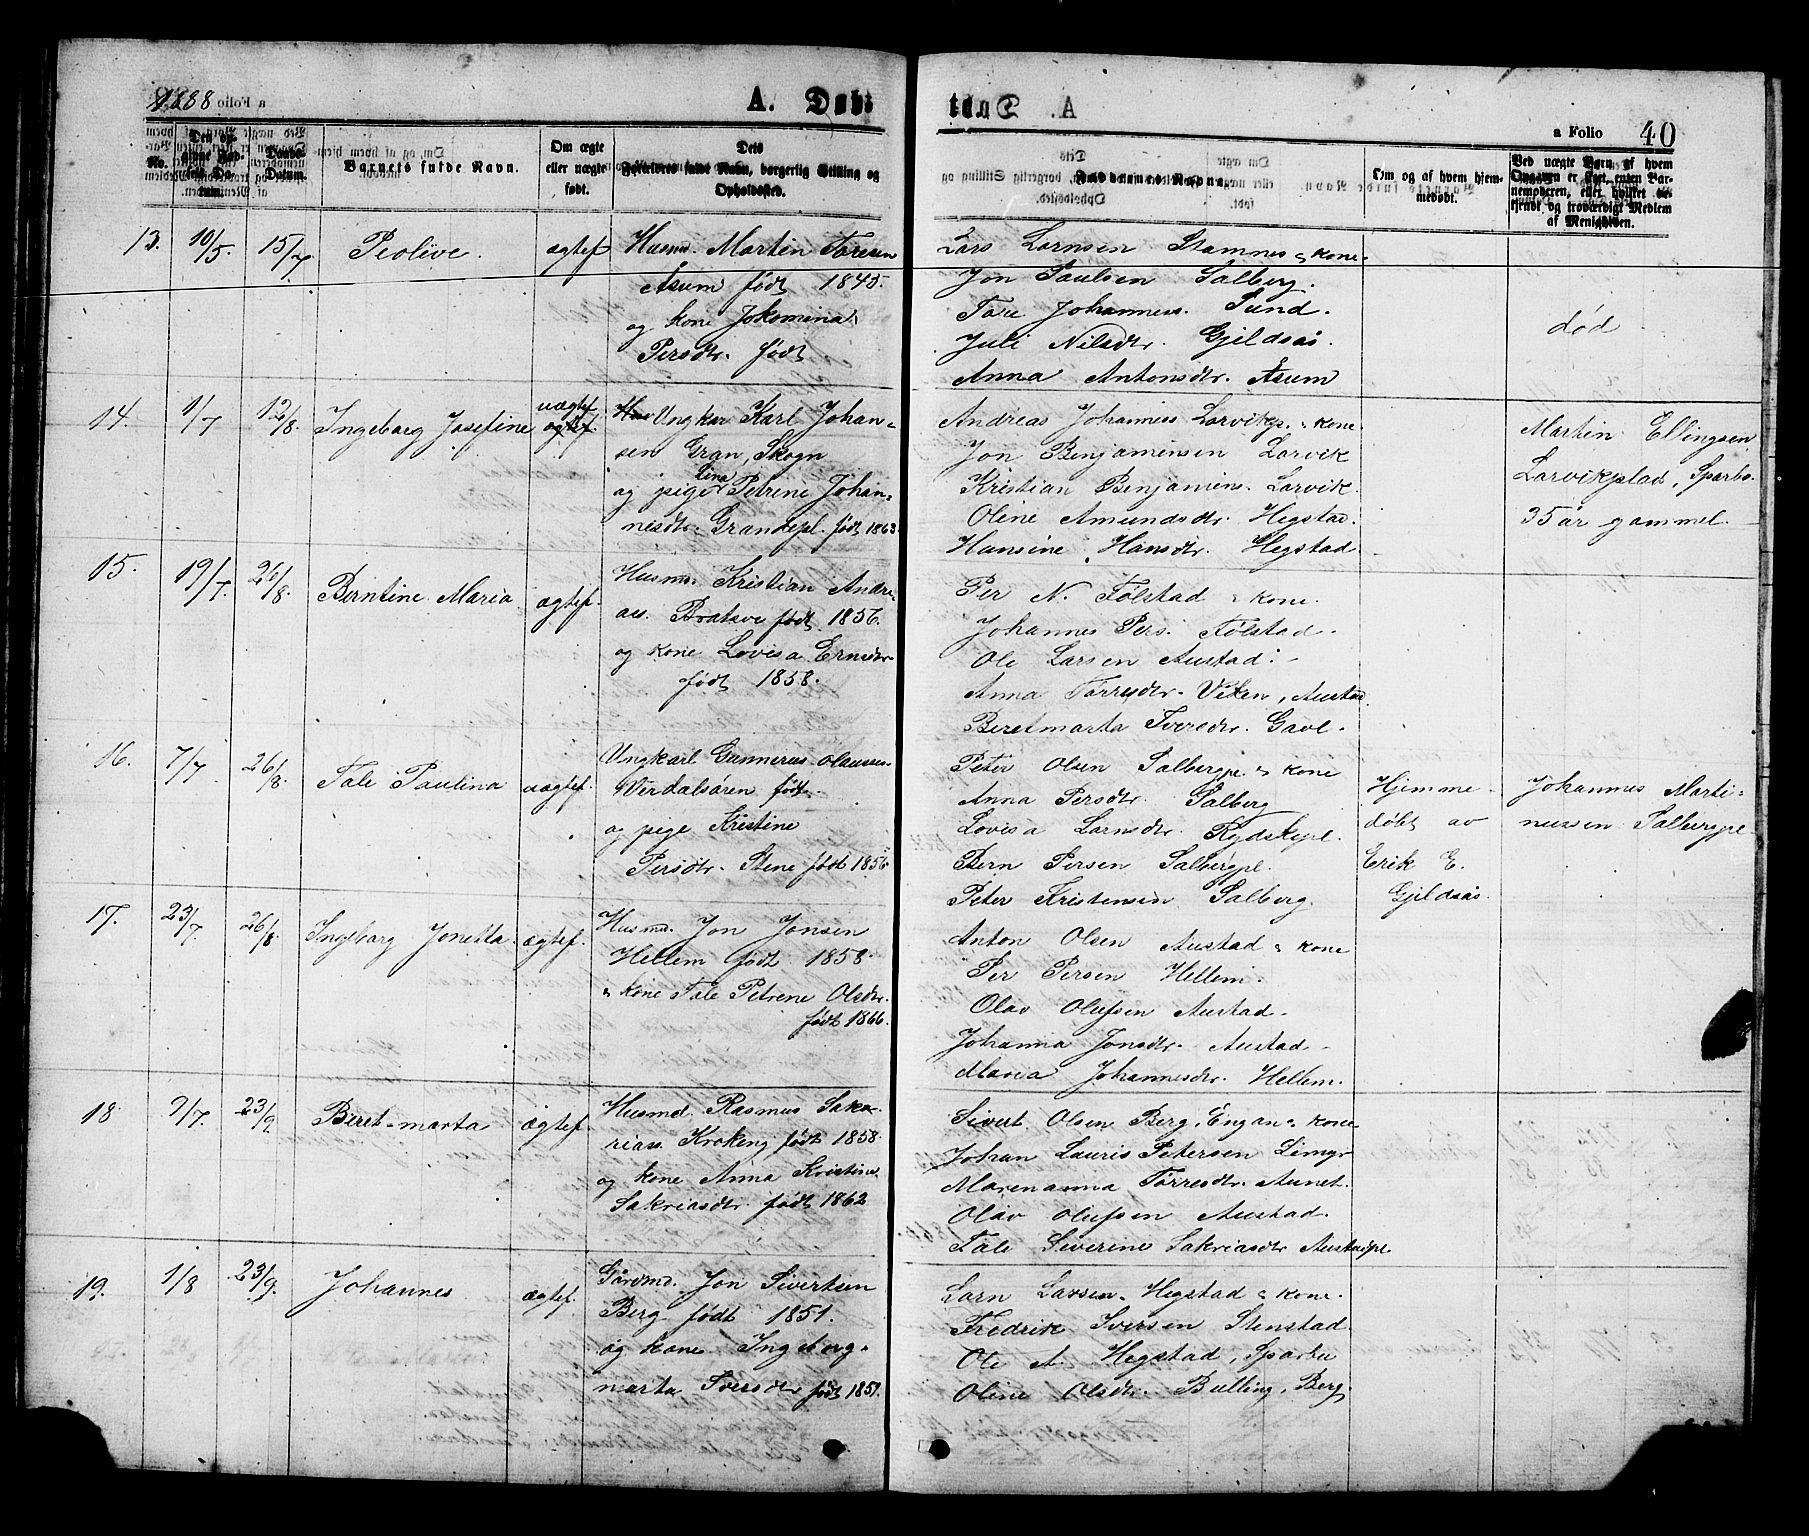 1888
A. Døbt
a Folio 40
No.
Den opgivne Fødsels Datum.
Daabs-Datum.
Barnets fulde Navn.
Om ægte eller uægte født.
Dets Forældres fulde Navn, borgerlig Stilling og Opholdssted.
Faddernes Navn.
Om og af hvem hjemmedøbt.
Ved uægte Børn, af hvem Opgaven er skeet, enten Barnemoderen, eller hvilket bekjendt og troværdigt Medlem af Menigheden.
13. 10/5. 15/7 Peolive. ægtef. Husmd. Martin Toresen
Asum født 1845.
og kone Jokomina
Persdtr. født
Lars Larnsen Stamnes & kone.
Jon Paulsen Salberg.
Tore Johanness. Sund.
Juli Nilsdtr. Gjildsås.
Anna Antonsdtr. Asum
død
14. 1/7 12/8. Ingeborg Josefine uægtef. Ungkar Karl Johan=
sen Gran, Skogn
og pige Lina Petrene Johan=
nesdtr. Grandepl. født 1863.
Andreas Johanness Larvikpl. & kone.
Jon Benjaminsen Larvik
Kristian Benjamins. Larvik.
Olene Amundsdtr. Hegstad.
Hansine Hansdtr. Hegstad.
Martin Ellingsen
Larvikpstad, Sparbo.
35 år gammel.
15. 19/7. 26/8. Berntine Maria ægtef. Husmd. Kristian Andre=
as. Bratave født 1856.
og kone Lovisa Ernsdtr.
født 1858.
Per N. Følstad & kone.
Johannes Pers. Følstad.
Ole Larsen Austad.
Anna Torresdtr. Veten, Austad.
Beretmarta Iversdtr. Gavl.
16. 7/7 26/8. Tale Paulina uægtef. Ungkarl Gunnerus Olaussen
Verdalsøren født
og pige Kristine
Persdtr. Stene født 1856
Peter Olsen Salbergpl. & kone
Anna Persdtr. Salberg
Lovisa Larnsdtr. Rydskpl.
Bern Persen Salbergpl.
Peter Kristensen Salberg.
Hjemme=
døbt av
Erik E.
Gjildsås.
Johannes Marti=
nussen Salbergpl.
17. 23/7. 26/8. Ingeborg Jonetta. ægtef. Husmd. Jon Jonsen
Hellem født 1858.
& kone Tale Petrene Olsdtr.
født 1866.
Anton Olsen Austad & kone
Per Persen Hellem.
Olav Olufsen Austad.
Johanna Jonsdtr. Austad.
Maria Johannesdtr. Hellem.
18. 9/7. 23/9. Beret-marta ægtef. Husmd. Rasmus Saka=
rias. Kroken født 1858.
og kone Anna Kristina
Sakriasdtr. født 1862
Sivert Olsen Berg, Engan & kone.
Johan Lauris Petersen Limyr
Marenanna Torresdtr. Aunet.
Olav Olufsen Austad.
Tale Siverine Sakriasdtr Austadpl.
19. 1/8 23/9. Johannes ægtef. Gårdmd. Jon Sivertsen
Berg født 1851.
og kone Ingeborg=
marta Iversdtr. født 1851.
Larn Larsen Hegstad & kone.
Fredrik Iversen Stenstad.
Ole A. Hegstad, Sparbu
Oline Olsdtr. Bulling, Berg.